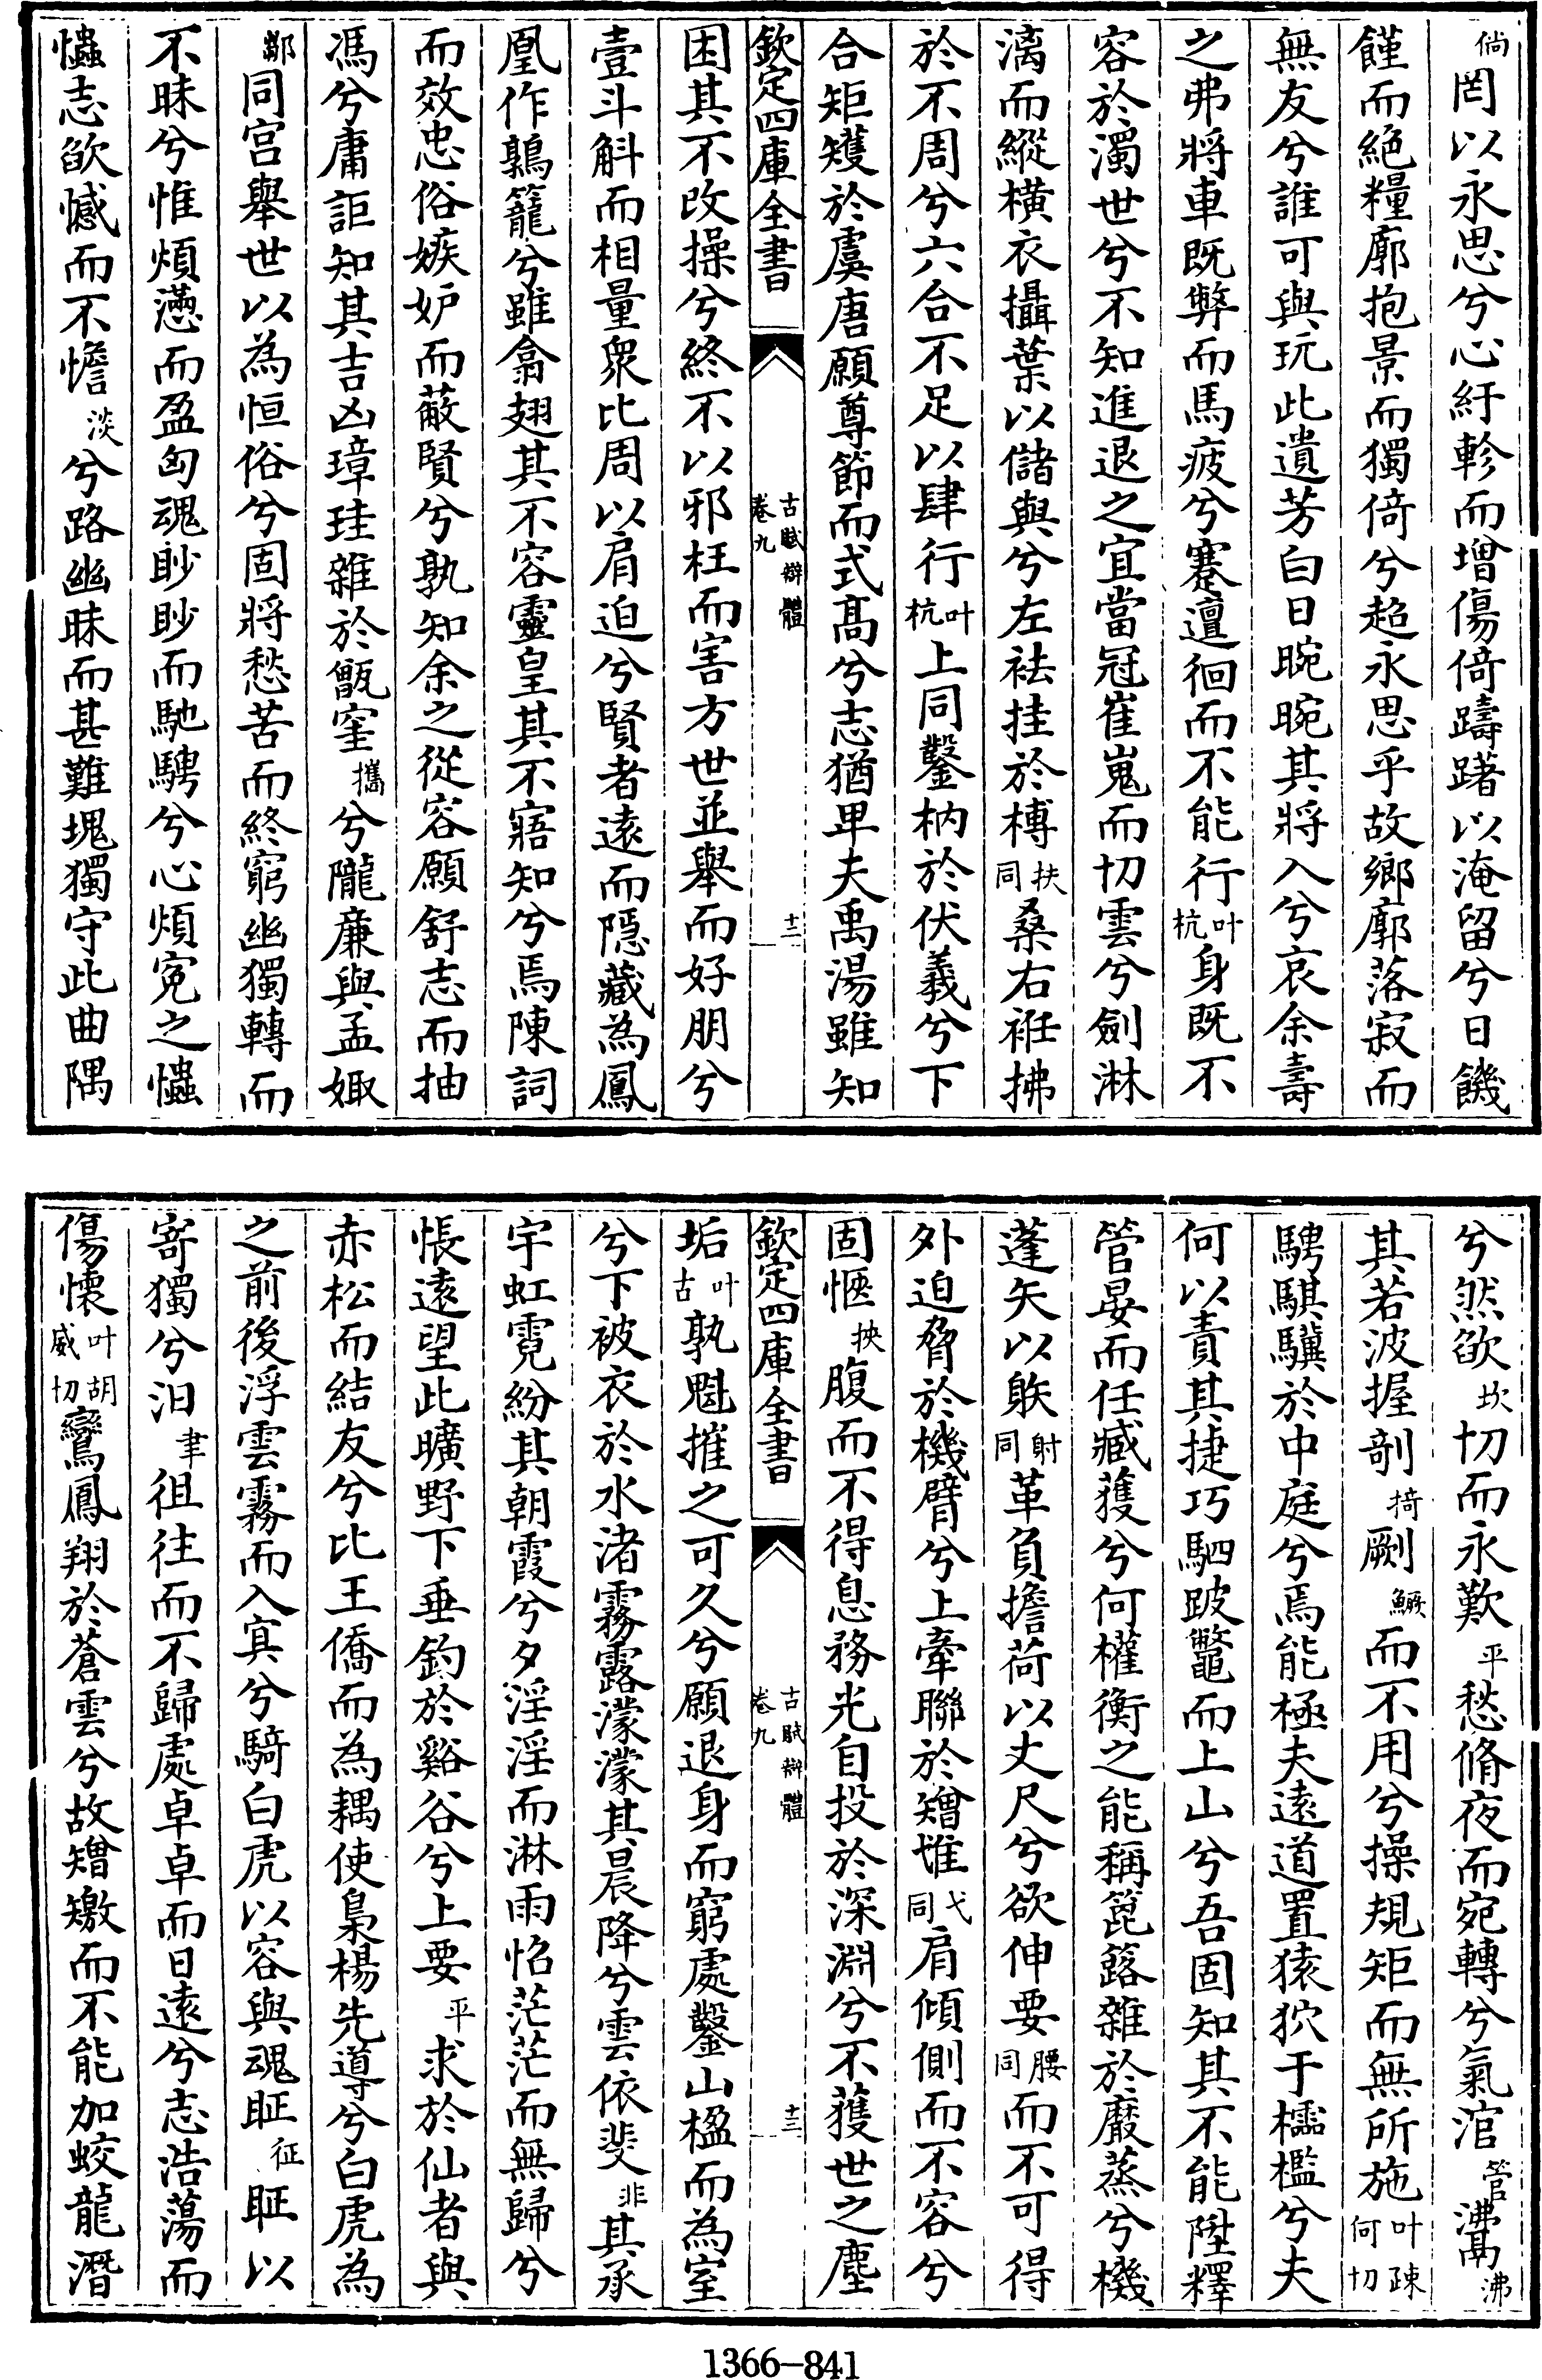 倘罔以永思兮心紆軫而增傷倚躊躇以淹留兮日饑
饉而絶糧廓抱景而獨倚兮超永思乎故鄉廓落寂而
無友兮誰可與玩此遺芳白日晼晼其將入兮哀余壽
之弗將車既弊而馬疲兮蹇邅徊而不能行叶杭身既不
容於濁世兮不知進退之宜當冠崔嵬而切雲兮劍淋
漓而縱橫衣攝葉以儲與兮左袪挂於榑扶同桑右衽拂
於不周兮六合不足以肆行叶杭上同鑿枘於伏羲兮下
合矩矱於虞唐願尊節而式髙兮志猶卑夫禹湯雖知
欽定四庫全書 古賦辯體 卷九 十二
困其不改操兮終不以邪枉而害方世並舉而好朋兮
壹斗斛而相量衆比周以肩迫兮賢者逺而隠藏為鳳
凰作鶉籠兮雖翕翅其不容靈皇其不寤知兮焉陳詞
而效忠俗嫉妒而蔽賢兮孰知余之從容願舒志而抽
馮兮庸詎知其吉凶璋珪雜於甑窐攜兮隴廉與孟娵
鄒同宫舉世以為恒俗兮固將愁苦而終窮幽獨轉而
不昧兮惟煩懣而盈匈魂眇眇而馳騁兮心煩寃之㦕
㦕志欿憾而不憺淡兮路幽昧而甚難塊獨守此曲隅
兮然欿坎切而永歎平愁脩夜而宛轉兮氣涫管㵒沸
其若波握剞掎劂鱖而不用兮操規矩而無所施叶疎何切
騁騏驥於中庭兮焉能極夫逺道置猿狖于櫺檻兮夫
何以責其捷巧駟跛鼈而上山兮吾固知其不能陞釋
管晏而任臧獲兮何權衡之能稱箟簬雜於黀蒸兮機
蓬矢以䠶射同革負擔荷以丈尺兮欲伸要腰同而不可得
外迫脅於機臂兮上牽聯於矰隿弋同肩傾側而不容兮
固愜挾腹而不得息務光自投於深淵兮不獲世之塵
欽定四庫全書 古賦辯體 卷九 十三
垢叶古孰魁摧之可久兮願退身而窮處鑿山楹而為室
兮下被衣於水渚霧露濛濛其晨降兮雲依斐非其承
宇虹霓紛其朝霞兮夕淫淫而淋雨怊茫茫而無歸兮
悵逺望此曠野下垂釣於谿谷兮上要平求於仙者與
赤松而結友兮比王僑而為耦使梟楊先導兮白虎為
之前後浮雲霧而入㝠兮騎白虎以容與魂眐征眐以
寄獨兮汩聿徂往而不歸處卓卓而日逺兮志浩蕩而
傷懷叶胡威切鸞鳳翔於蒼雲兮故矰繳而不能加蛟龍潛
1366-841